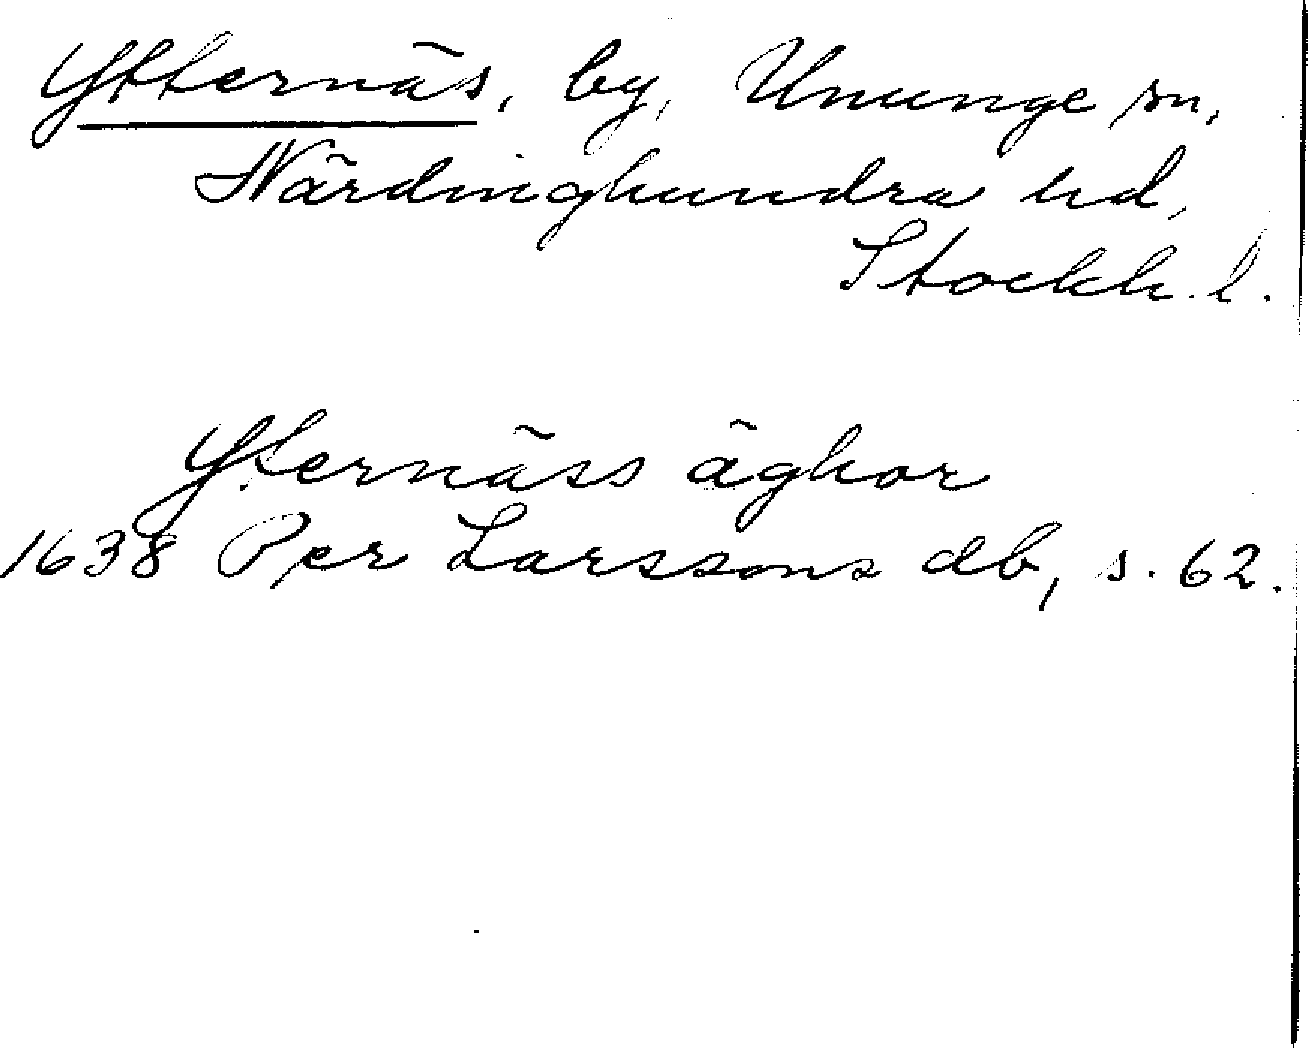 Ytternäs, by, Ununge sn,
Närdinghundra hd,
Stockh. l.
Yternäss äghor
1638 Per Larssons db, s. 62.